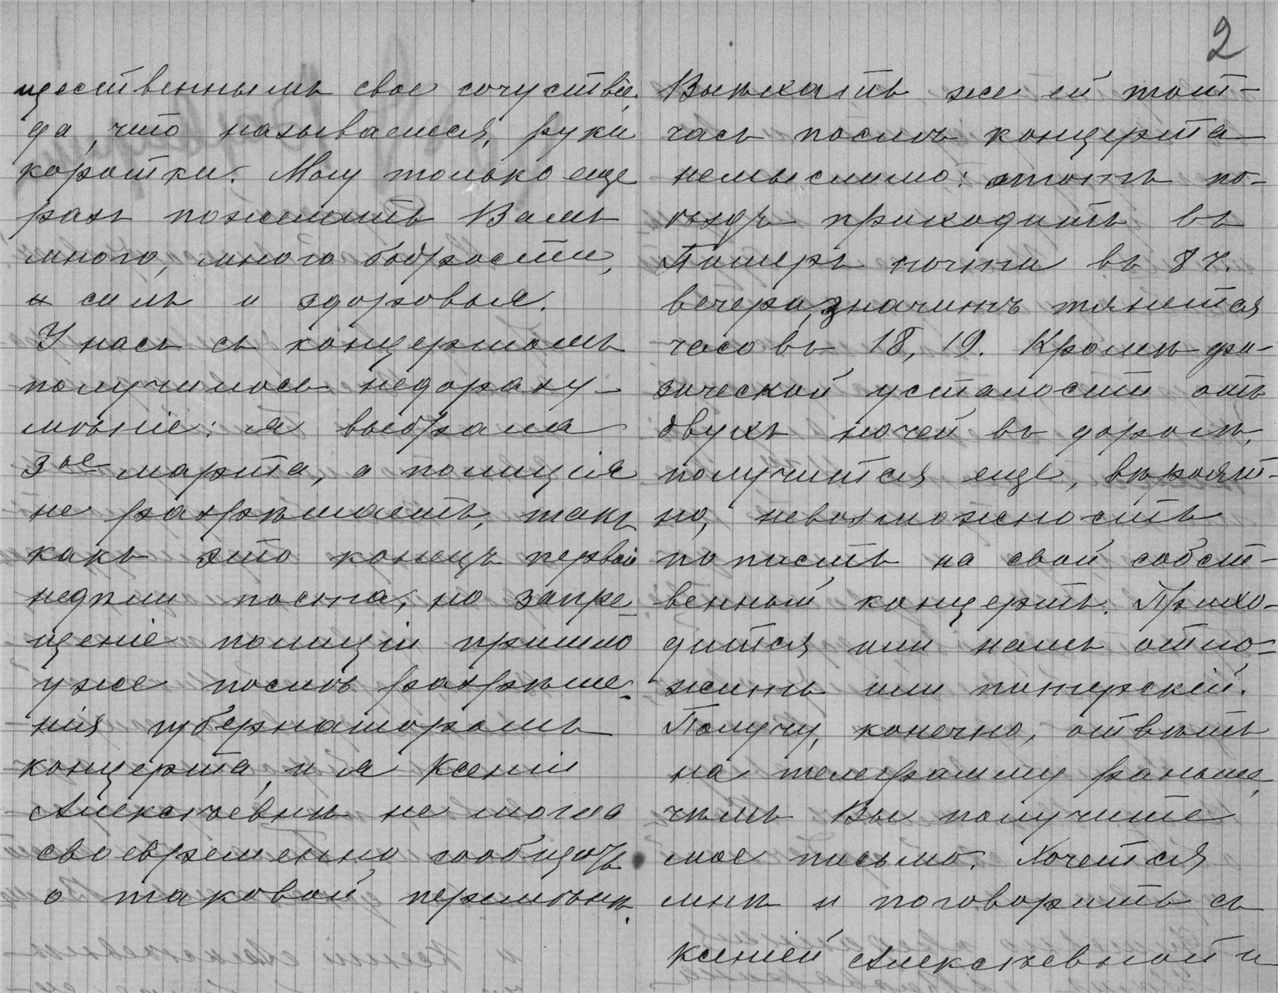 2
щественнымъ свое сочуствіе,
да, что называется, руки
коротки. Могу только еще
разъ пожелать Вамъ
много, много бодрости,
силъ и здоровья.
У насъ съ концертомъ
получилось недоразу-
мѣніе: я выбрала
3ье марта, а полиція
не разрѣшаетъ, такъ
какъ это конецъ первой
недѣли поста, но запре-
щеніе полиціи пришло
уже послѣ разрѣше-
нія губернаторомъ
концерта, и я Ксеніи
Алексѣевнѣ не могла
своевременно сообщить
о таковой перемѣнѣ.
Выѣхать же ей тот-
часъ послѣ концерта
немыслимо: этотъ по-
ѣздъ приходитъ въ
Питеръ почти въ 8 ч.
вечера, значитъ тянется
часовъ 18, 19. Кромѣ фи-
зической усталости отъ
двухъ ночей въ дорогѣ,
получится еще, вѣроят-
но, невозможность
попасть на свой собст-
венный концертъ. Прихо-
дится или намъ отло-
жить или питерскій.
Получу, конечно, отвѣтъ
на телеграмму раньше,
чѣмъ Вы получите
мое письмо. Хочется
мнѣ и поговорить съ
Ксеніей Алексѣевной и